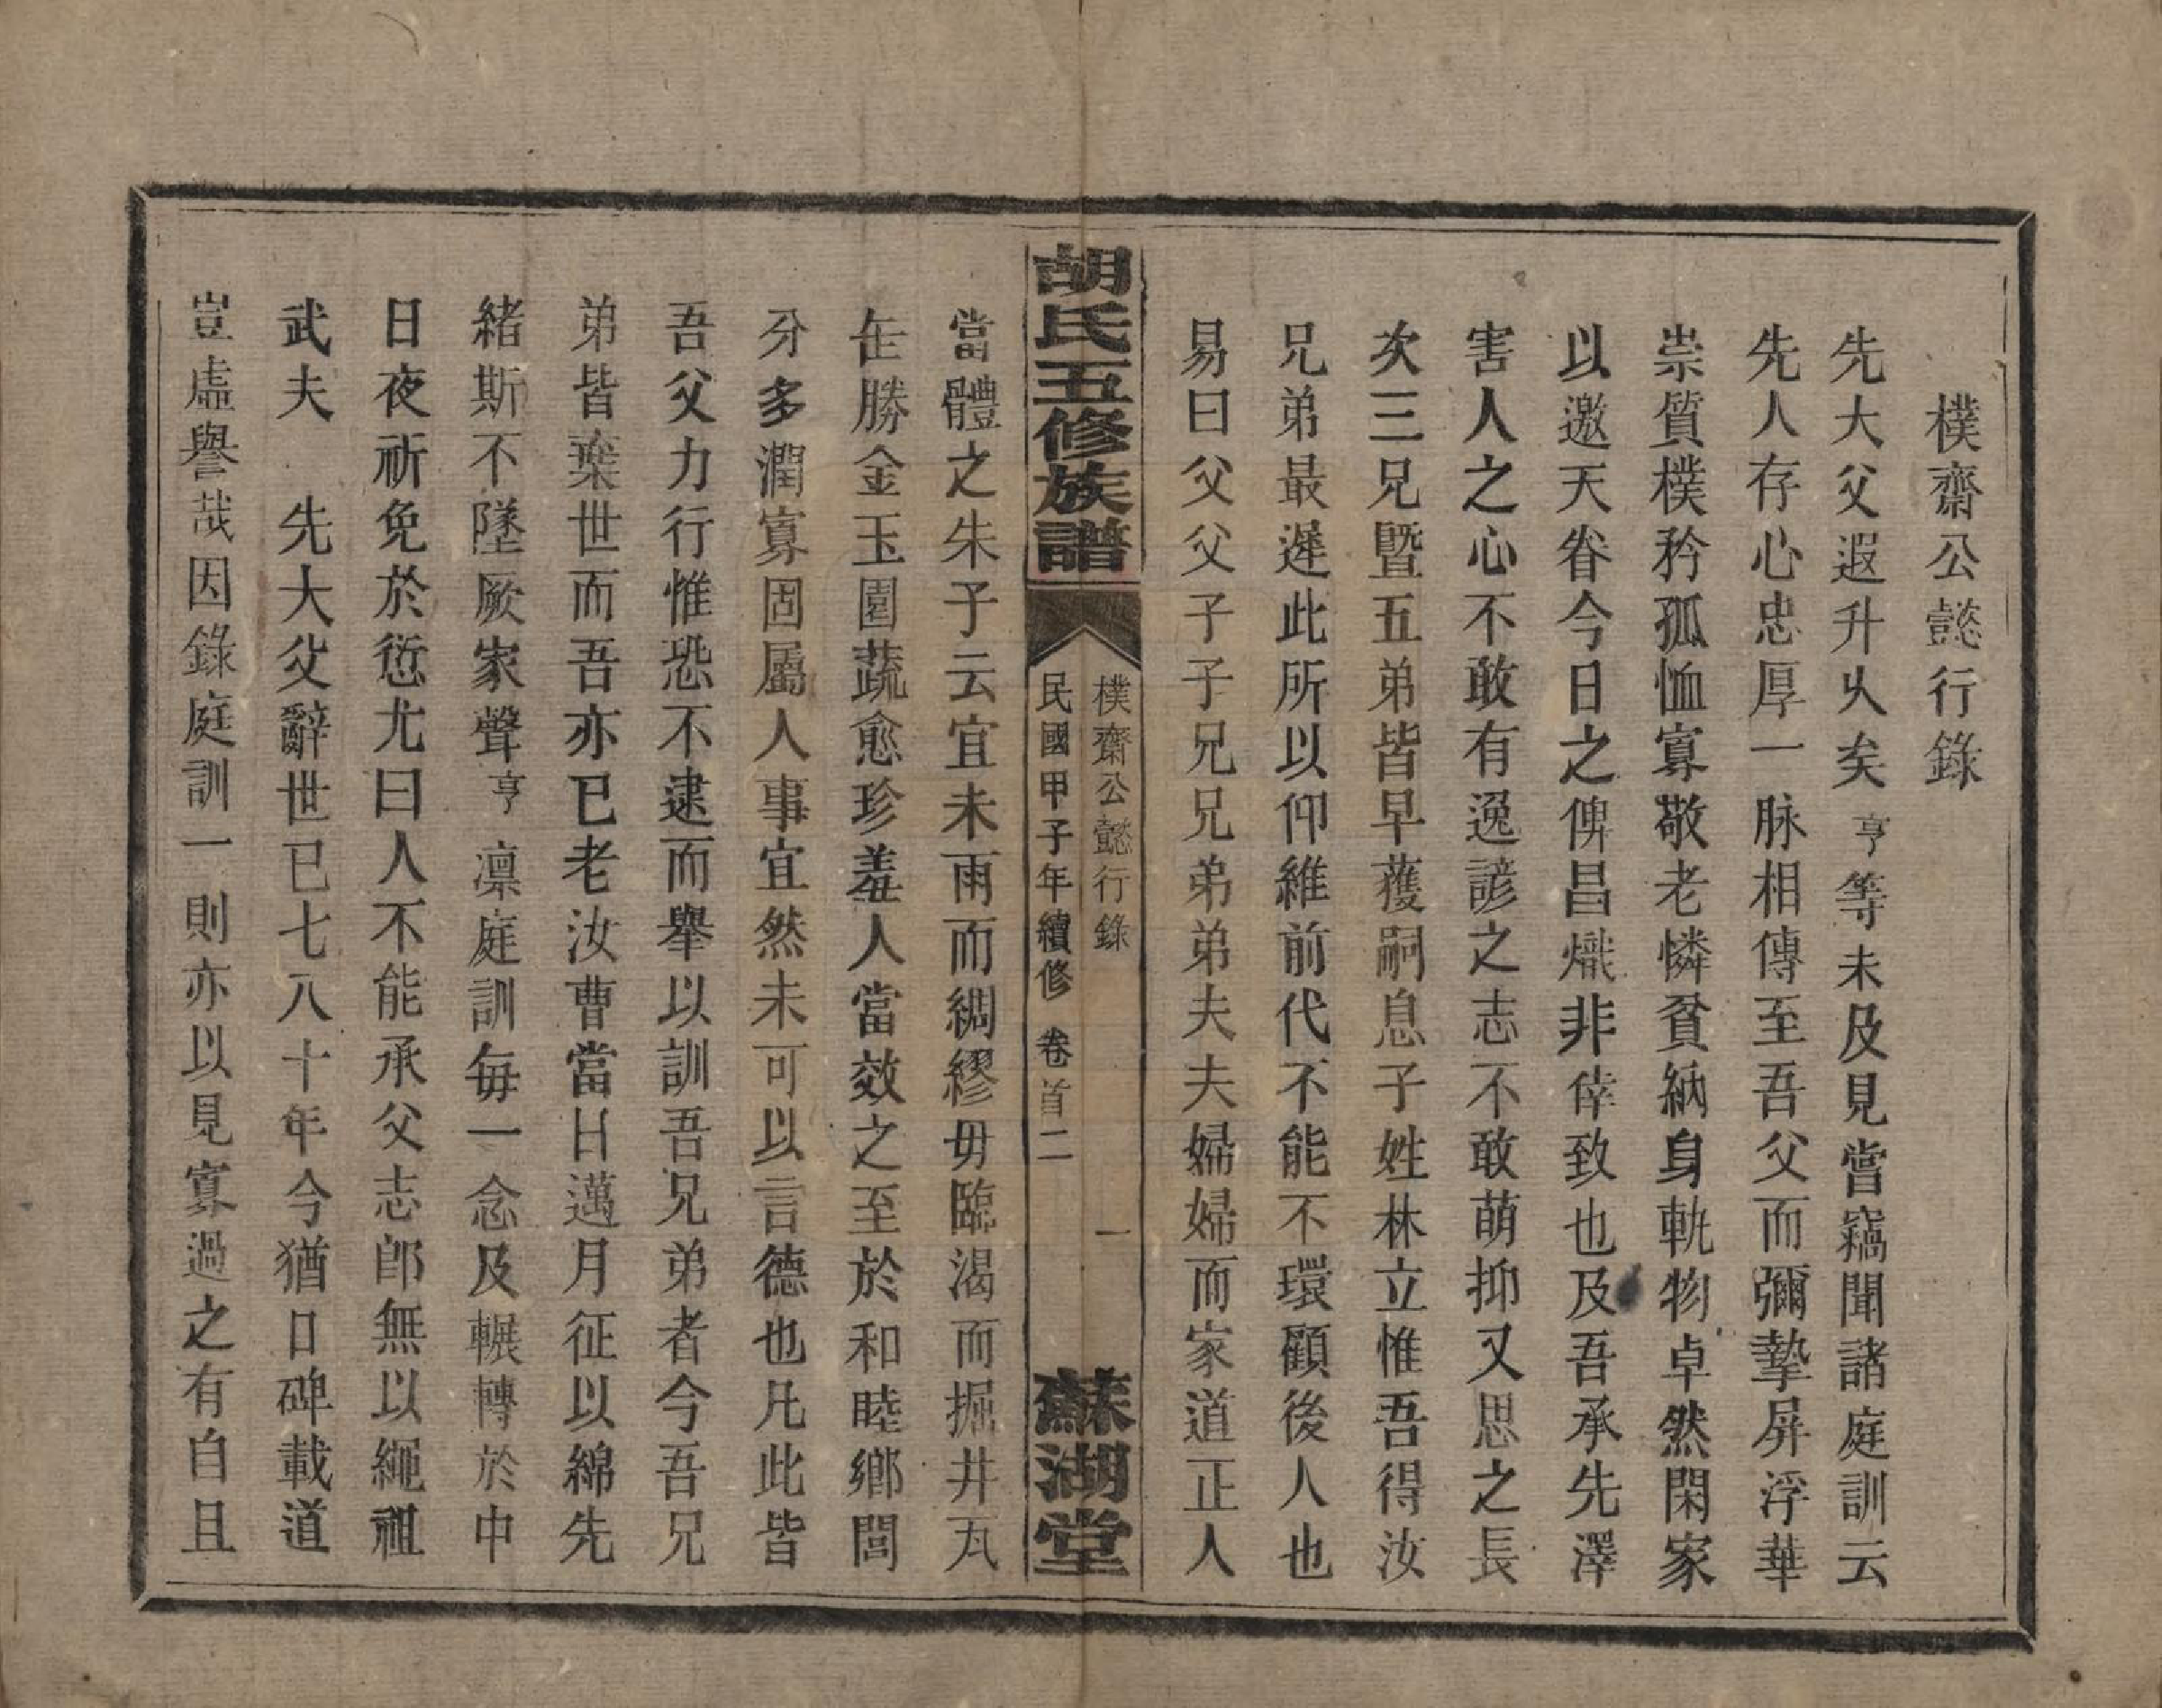 樸齋公懿行錄
先大父遐升乆矣亨等未及見嘗竊聞諸庭訓云
先人存心忠厚一脉相傳至吾父而彌摯屏浮華
崇質樸矜孤恤寡敬老憐貧納身軌物卓然閑家
以邀天眷今日之俾昌熾非倖致也及吾承先澤
害人之心不敢有逸諺之志不敢萌抑又思之長
次三兄暨五弟皆早蒦嗣息子姓林立惟吾得汝
兄弟最遲此所以仰維前代不能不環顧後人也
易曰父父子子兄兄弟弟夫夫婦婦而家道正人
胡氏五修族譜
樸齋公懿行錄
一
民國甲子年續修 卷首二
蘇湖堂
當體之朱子云宜未雨而綢繆毋臨渴而掘井瓦
缶勝金玉園蔬愈珍羞人當效之至於和睦鄉閭
分多潤寡固屬人事宜然未可以言德也凡此皆
吾父力行惟恐不逮而舉以訓吾兄弟者今吾兄
弟皆棄世而吾亦已老汝曹當日邁月征以綿先
緒斯不墜厥家聲亨凛庭訓每一念及輾轉於中
日夜祈免於愆尤曰人不能承父志郎無以繩祖
武夫 先大父辭世已七八十年今猶口碑載道
豈虛譽哉因錄庭訓一則亦以見寡過之有自且